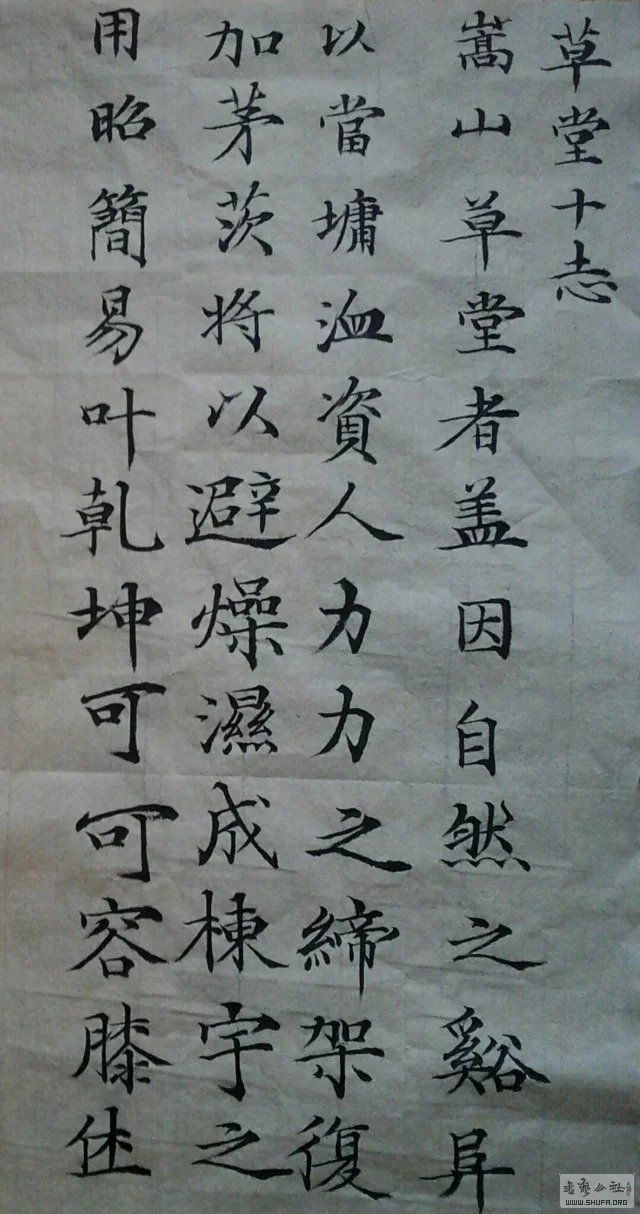 草堂十志
嵩山草堂者盖因自然之谿阜
以當墉洫資人力力之締架復
加茅茨将以避燥濕成棟宇之
用昭簡易叶乾坤可可容膝休
書藝公社
WWW.SHUFA.ORG